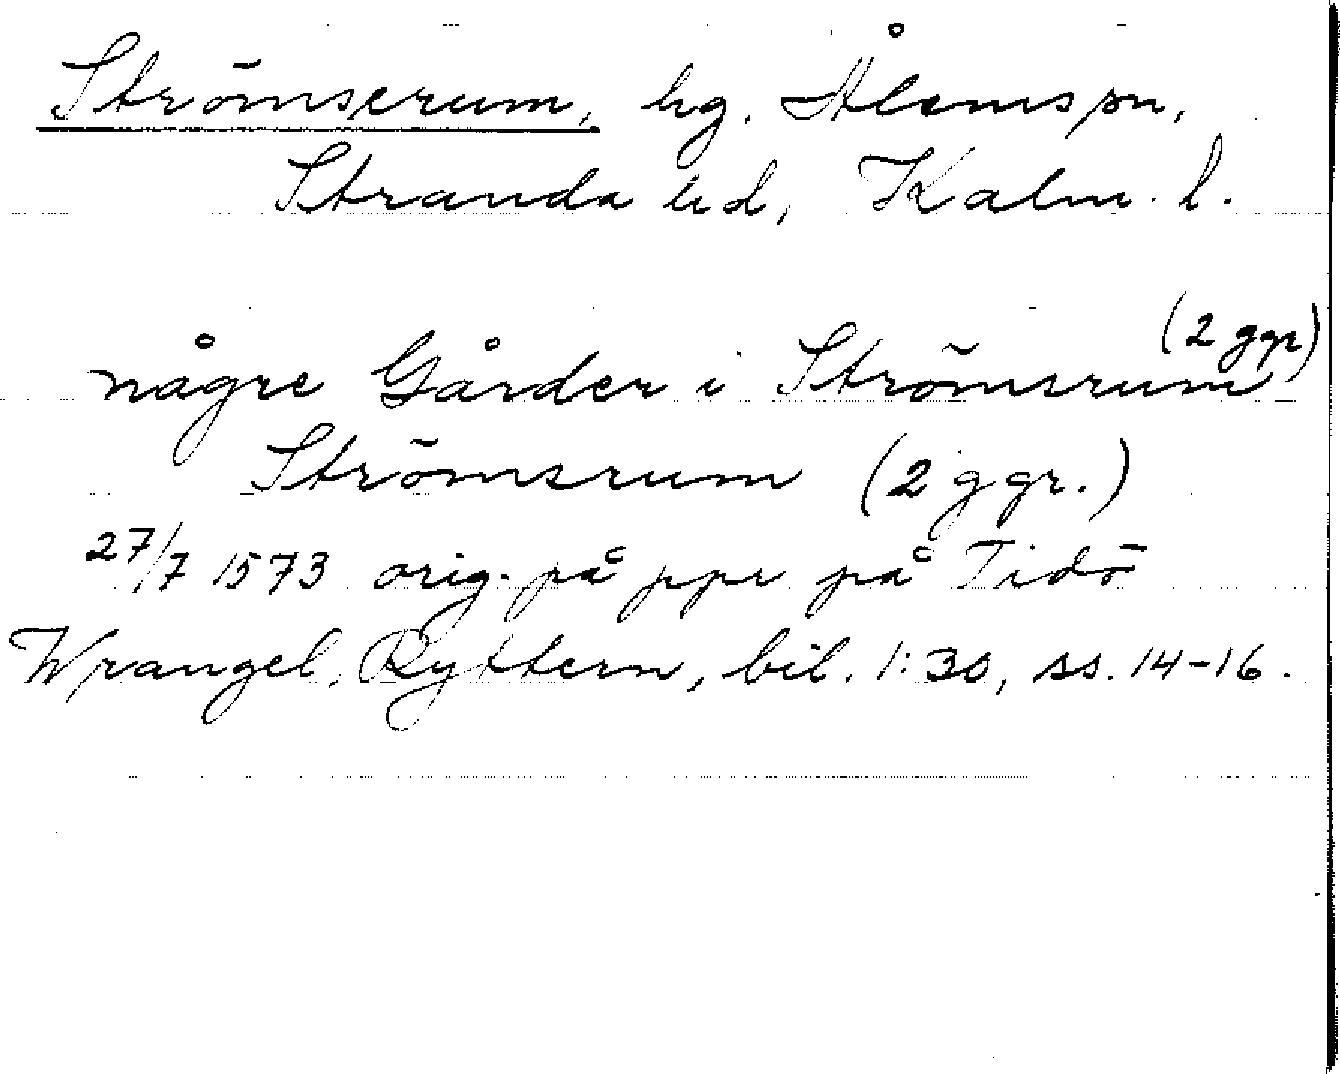 Strömserum, hg. Ålems sn,
Stranda hd, Kalm. l.
(2 ggr)
någre Gårder i Strömsrum
Strömsrum (2 ggr.)
27/7 1573 orig. på ppr på Tidö
Wrangel, Ryttern, bil. 1:30, ss. 14-16.